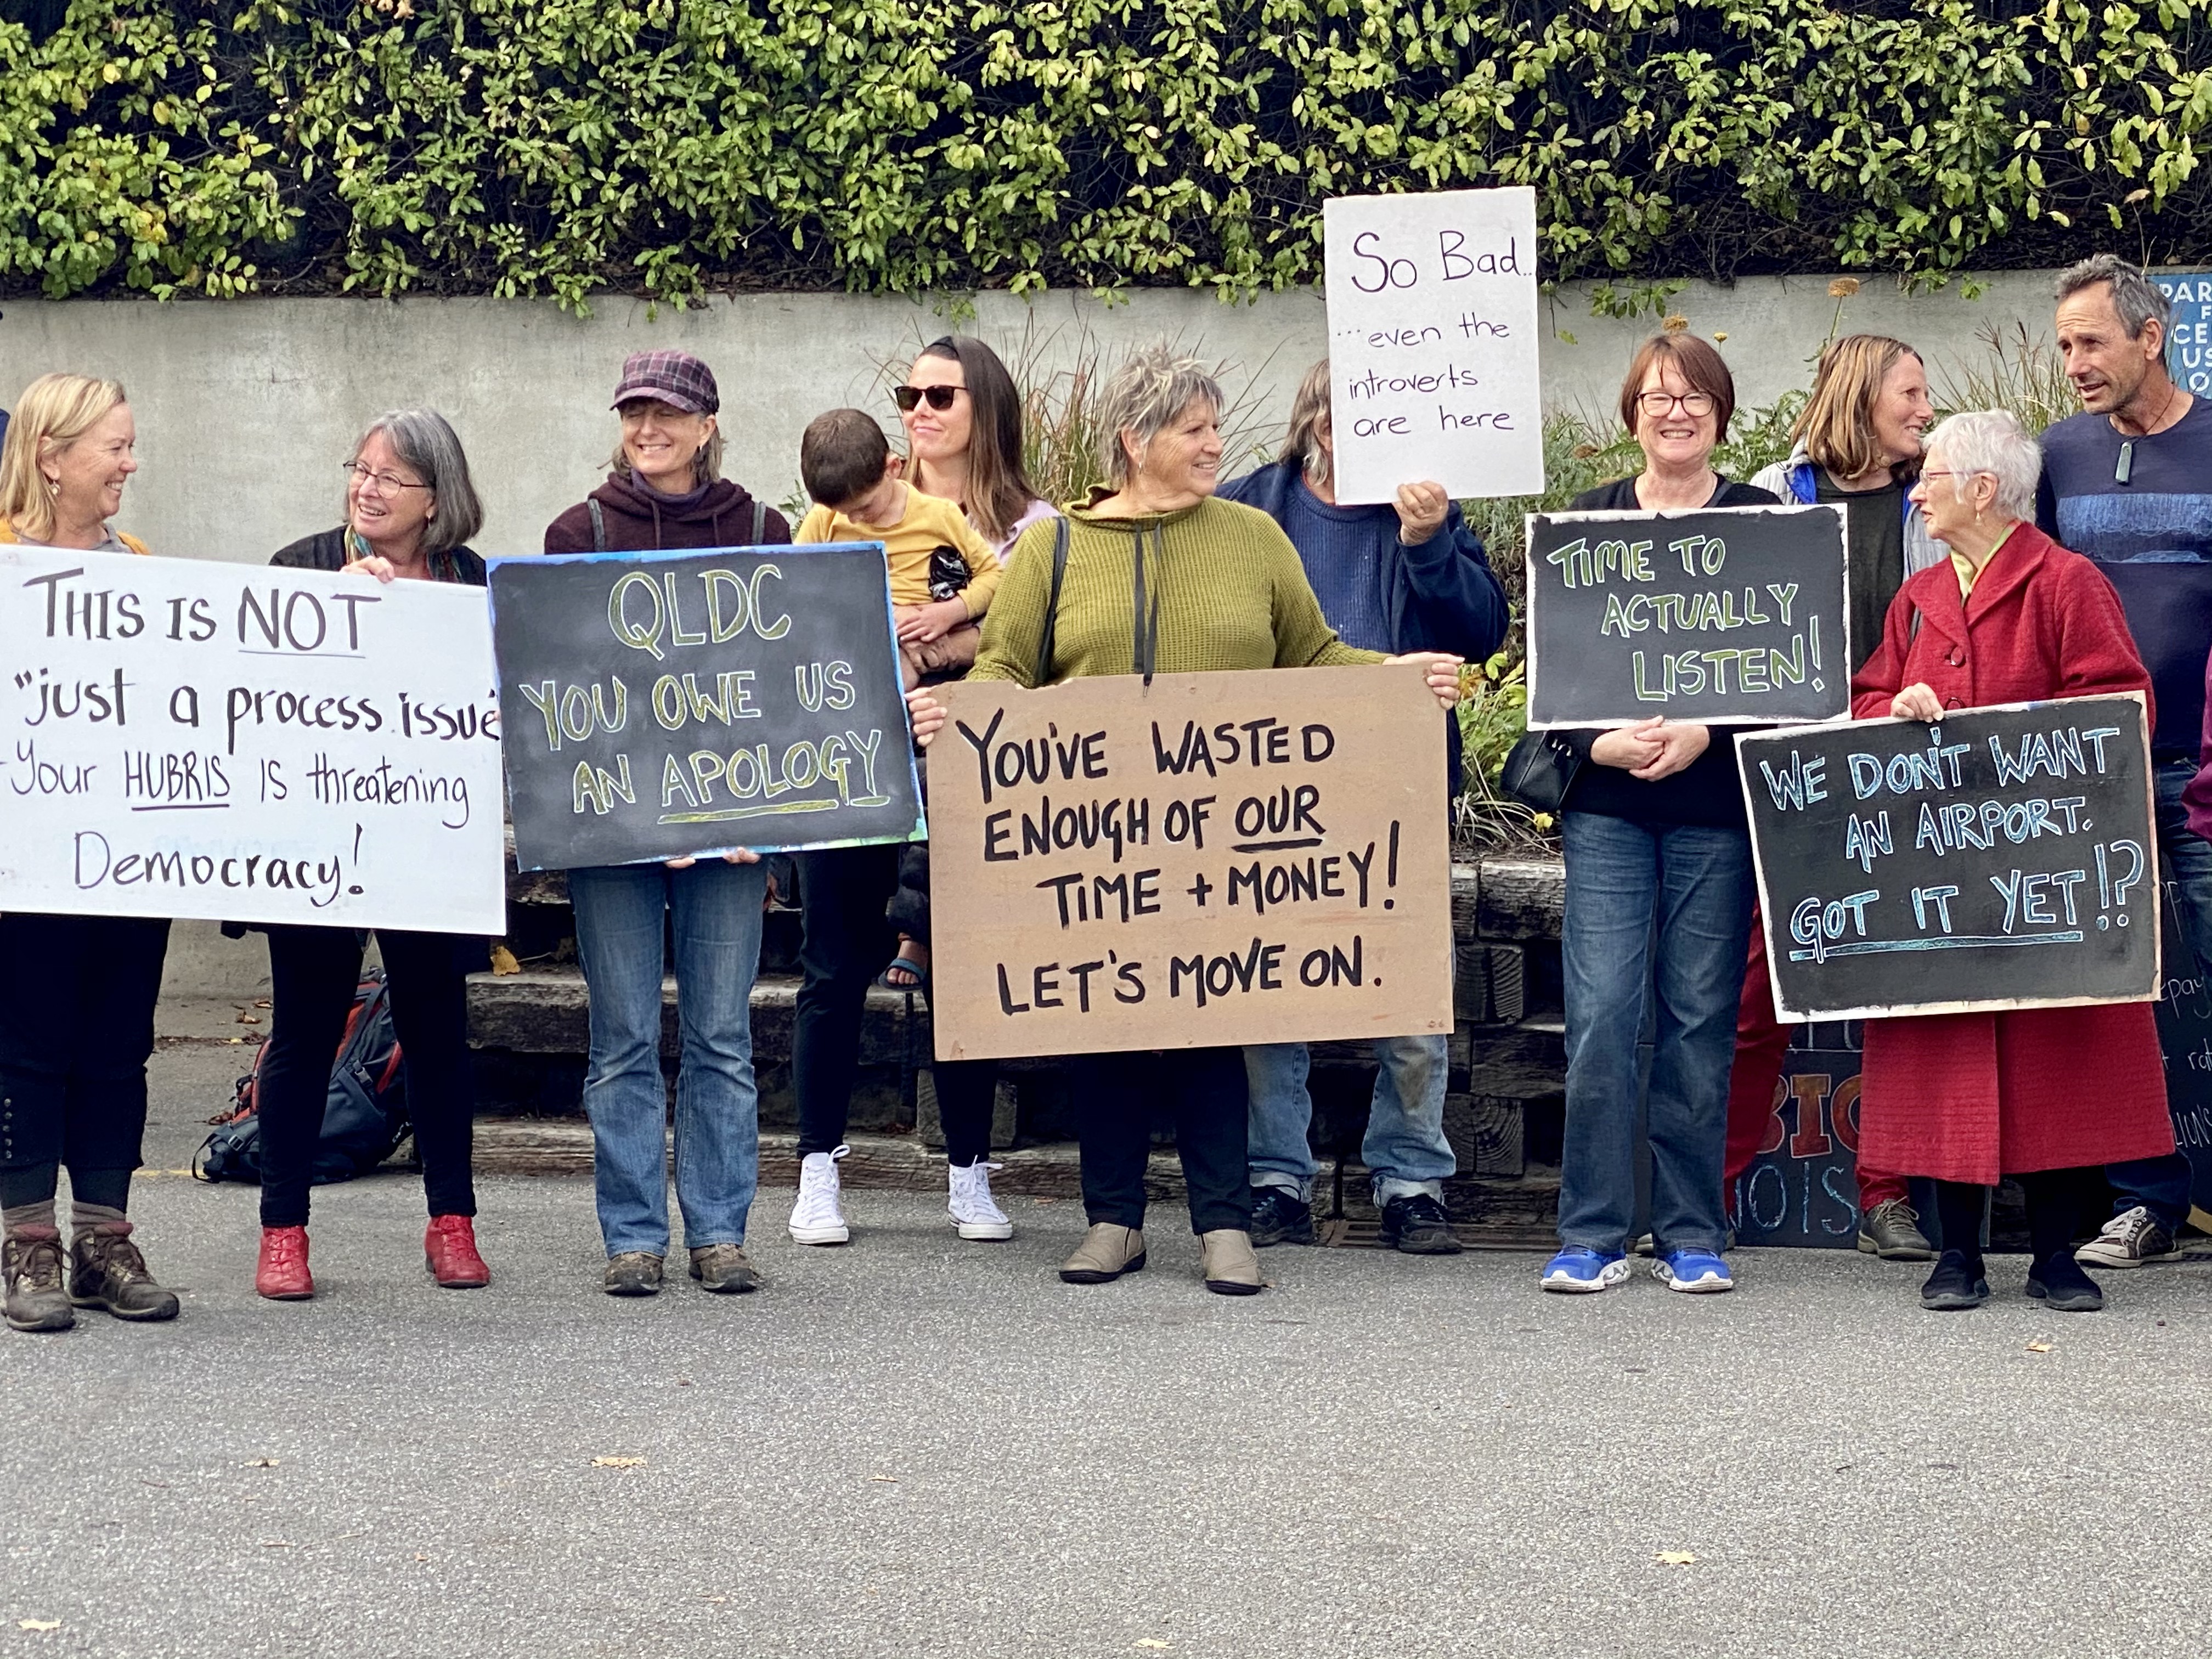 THIS IS NOT
"just a process issue
Your HUBRIS IS threatening
Democracy!
QLDC
YOU OWE US
AN APOLOGY
YOU'VE WASTED
ENOUGH OF OUR
TIME + MONEY!
LET'S MOVE ON.
So Bad..
...even the
introverts
are here
TIME TO
ACTUALLY
LISTEN!
WE DON'T WANT
AN AIRPORT.
GOT IT YET!?
PAR
F
CE
US
O
BIG
NOIS